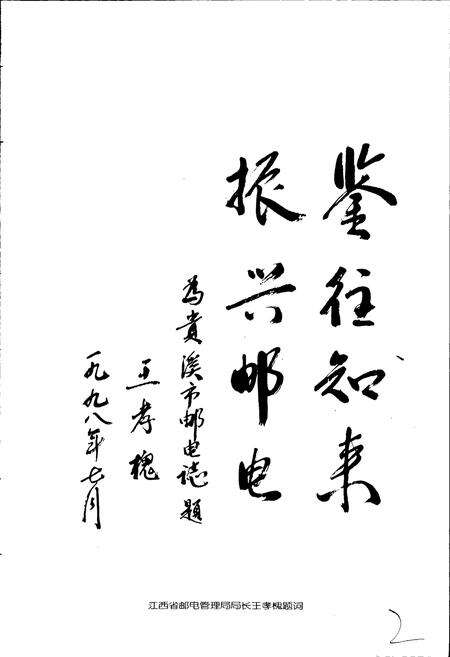 鉴往知来
振兴邮电
为貴溪市邮电誌题
王孝槐
一九九八年七月
江西省邮电管理局局长王孝槐题词
2